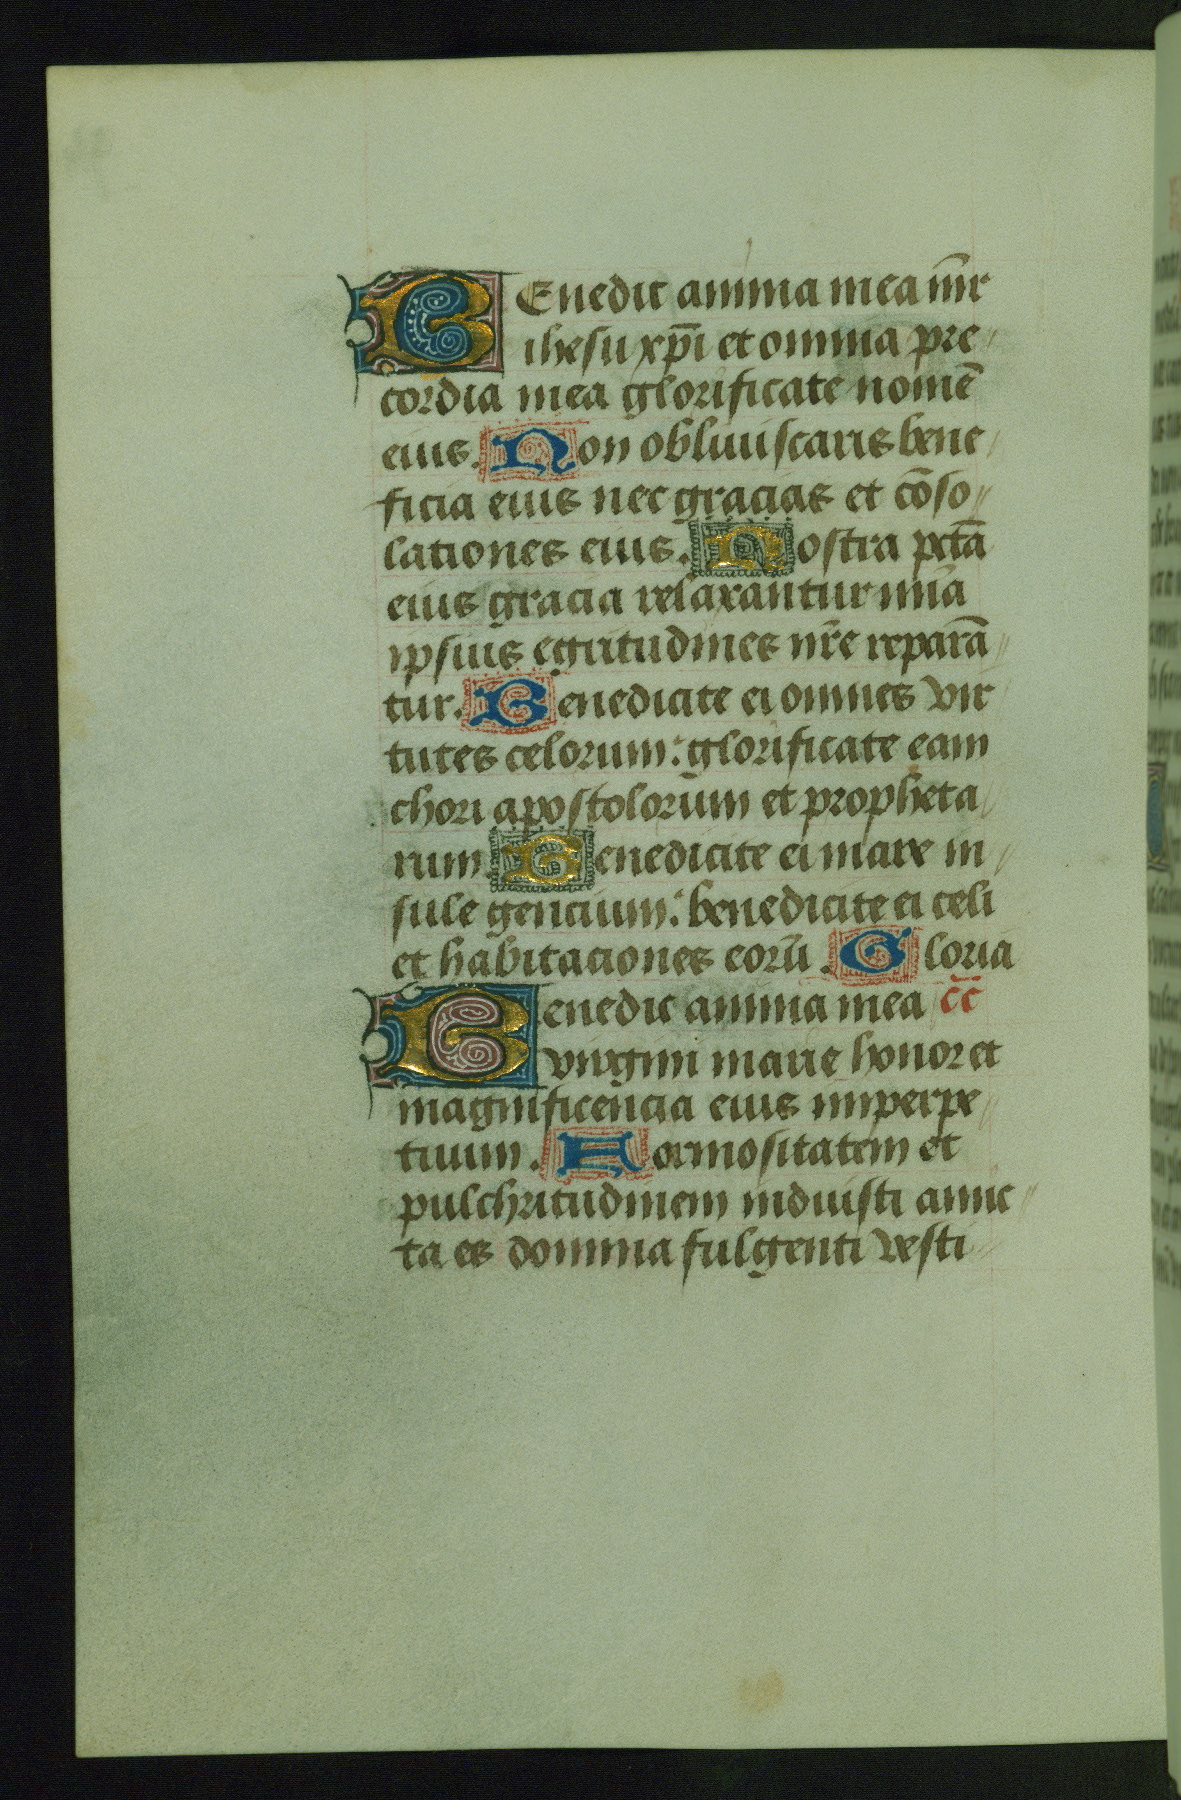 BEnedic anima mea mr̄i
ihesu xp̄i et omnia pre
cordia mea glorificate nomē
eius. Non obliuiscaris bene
ficia eius nec gracias et cōso
lationes eius. Nostra pctā
eius gracia relaxantur mīa
ipsius egritudines nr̄e reparā
tur. Benedicite ei omnes vir
tutes celorum: glorificate eam
chori apostolorum et propheta
rum. Benedicite ei mare in
sule gencium: benedicite ei celi
et habitaciones eorū. Gloria
Benedic anima mea c̄c̄
virgini marie honor et
magnificencia eius imperpe
tuum. Formositatem et
pulchritudinem induisti amic
ta es domina fulgenti vesti